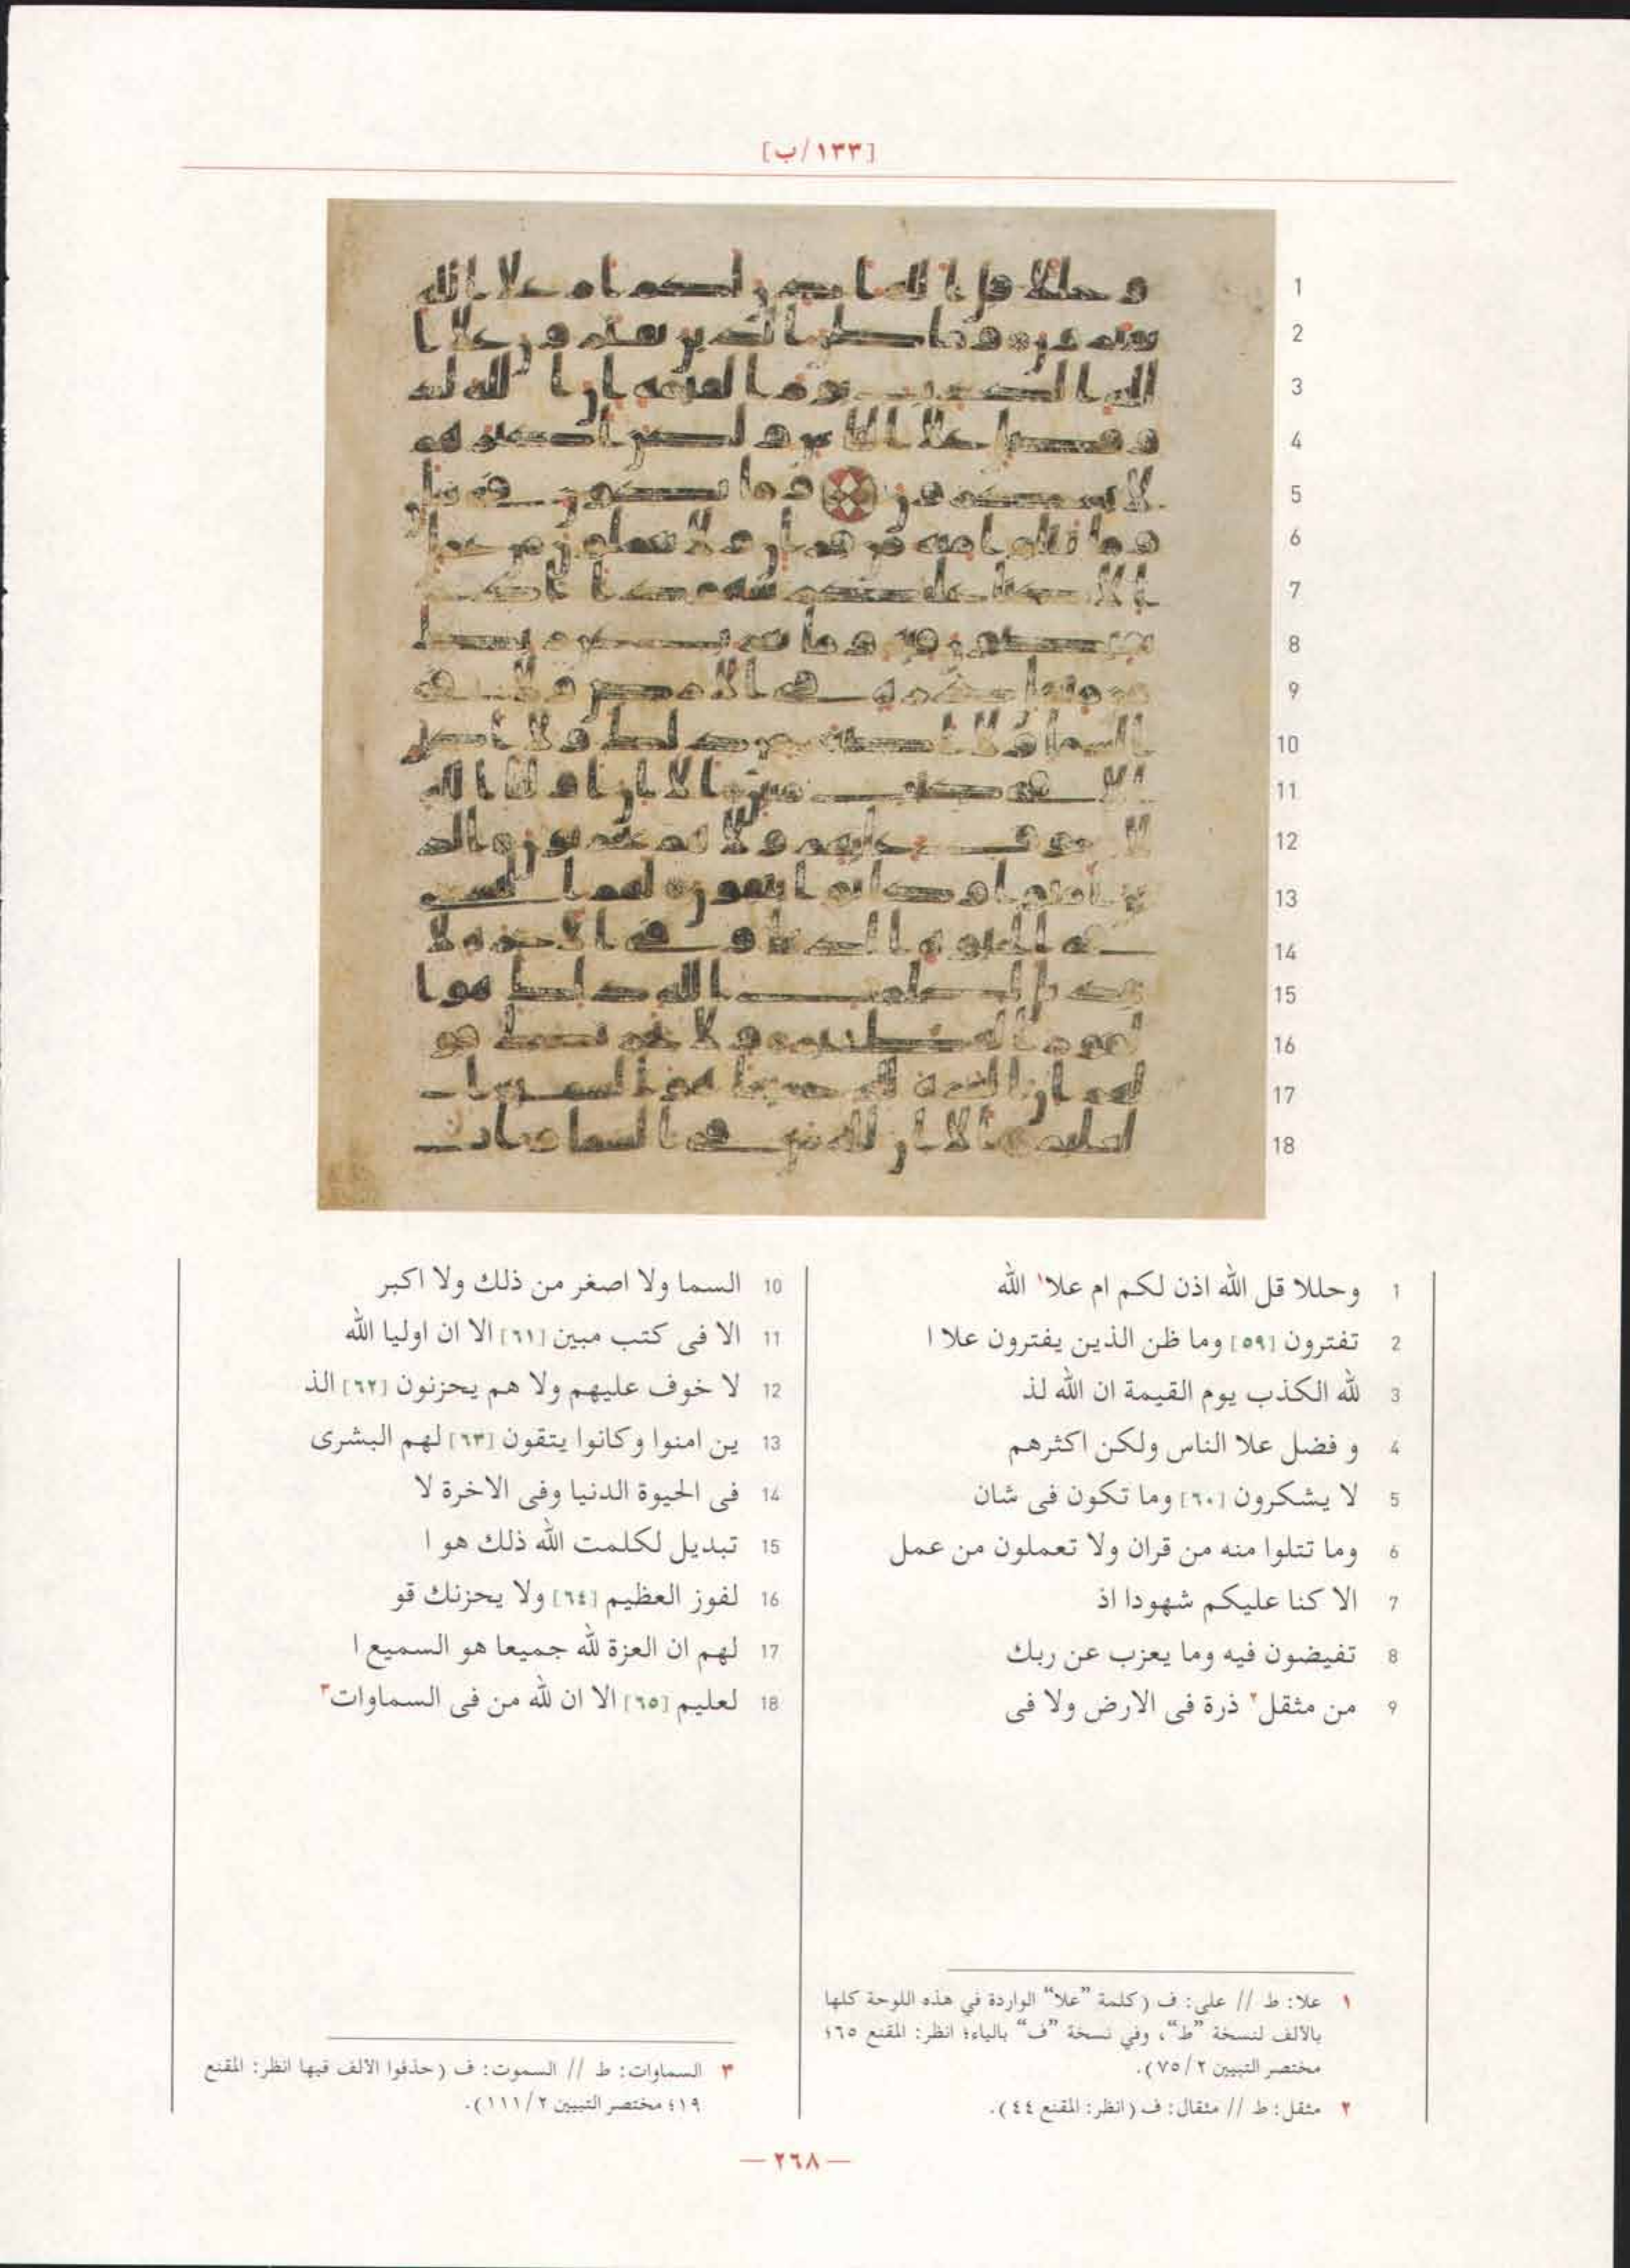 [١٣٣/ب]
1 وحللا قل الله اذن لكم ام علا١ الله
2 تفترون [٥٩] وما ظن الذين يفترون علا ا
3 لله الكذب يوم القيمة ان الله لذ
4 و فضل علا الناس ولكن اكثرهم
5 لا يشكرون [٦٠] وما تكون فى شان
6 وما تتلوا منه من قران ولا تعملون من عمل
7 الا كنا عليكم شهودا اذ
8 تفيضون فيه وما يعزب عن ربك
9 من مثقل٢ ذرة فى الارض ولا فى
10 السما ولا اصغر من ذلك ولا اكبر
11 الا فى كتب مبين [٦١] الا ان اوليا الله
12 لا خوف عليهم ولا هم يحزنون [٦٢] الذ
13 ين امنوا وكانوا يتقون [٦٣] لهم البشرى
14 فى الحيوة الدنيا وفى الاخرة لا
15 تبديل لكلمت الله ذلك هو ا
16 لفوز العظيم [٦٤] ولا يحزنك قو
17 لهم ان العزة لله جميعا هو السميع ا
18 لعليم [٦٥] الا ان لله من فى السماوات٣
١ علا: ط // على: ف (كلمة "علا" الواردة في هذه اللوحة كلها
بالألف لنسخة "ط"، وفي نسخة "ف" بالياء؛ انظر: المقنع ٦٥؛
مختصر التبيين ٧٥/٢).
٢ مثقل: ط // مثقال: ف (انظر: المقنع ٤٤).
٣ السماوات: ط // السموت: ف (حذفوا الألف فيها انظر: المقنع
١٩؛ مختصر التبيين ١١١/٢).
— ٢٦٨ —